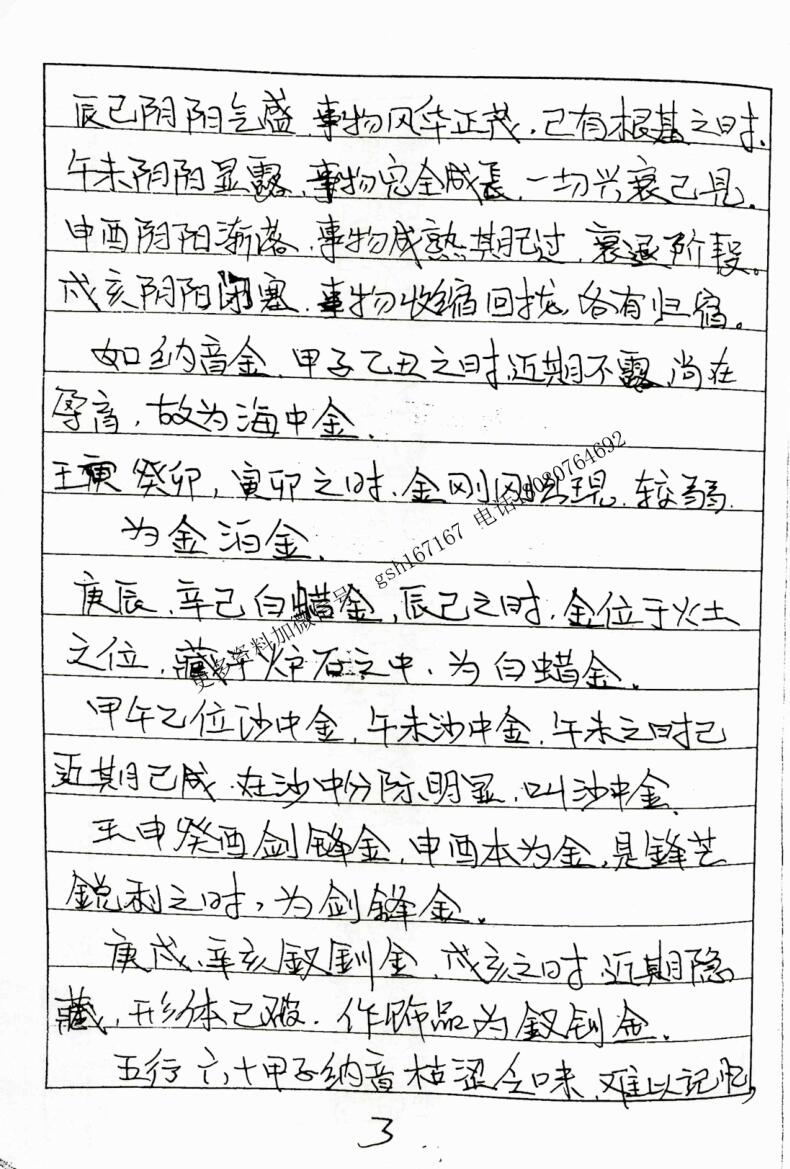 辰己阴阳气盛 事物风华正茂，己有根基之时.
午未阴阳显露，事物完全成长，一切兴衰己见.
申酉阴阳渐落，事物成熟期己过，衰退阶段。
戌亥阴阳闭塞，事物收缩回拢，各有归宿。
如纳音金，甲子乙丑之时近期不露，尚在
孕育，故为海中金.
壬寅 癸卯，寅卯之时，金刚刚出现，较弱.
为金泊金.
庚辰、辛己白蜡金，辰己之时，金位于火土
之位，藏于炉石之中，为白蜡金.
甲午乙位沙中金，午未沙中金，午未之时己
近期己成，在沙中分际明显，叫沙中金.
壬申癸酉剑锋金，申酉本为金，是鋒芒
鋭利之时，为剑锋金.
庚戌、辛亥钗钏金，戌亥之时，近期隐
藏，形体己破．作饰品为钗钏金.
五行六十甲子纳音枯涩乏味，难以记忆，
3
gsh167167 电话